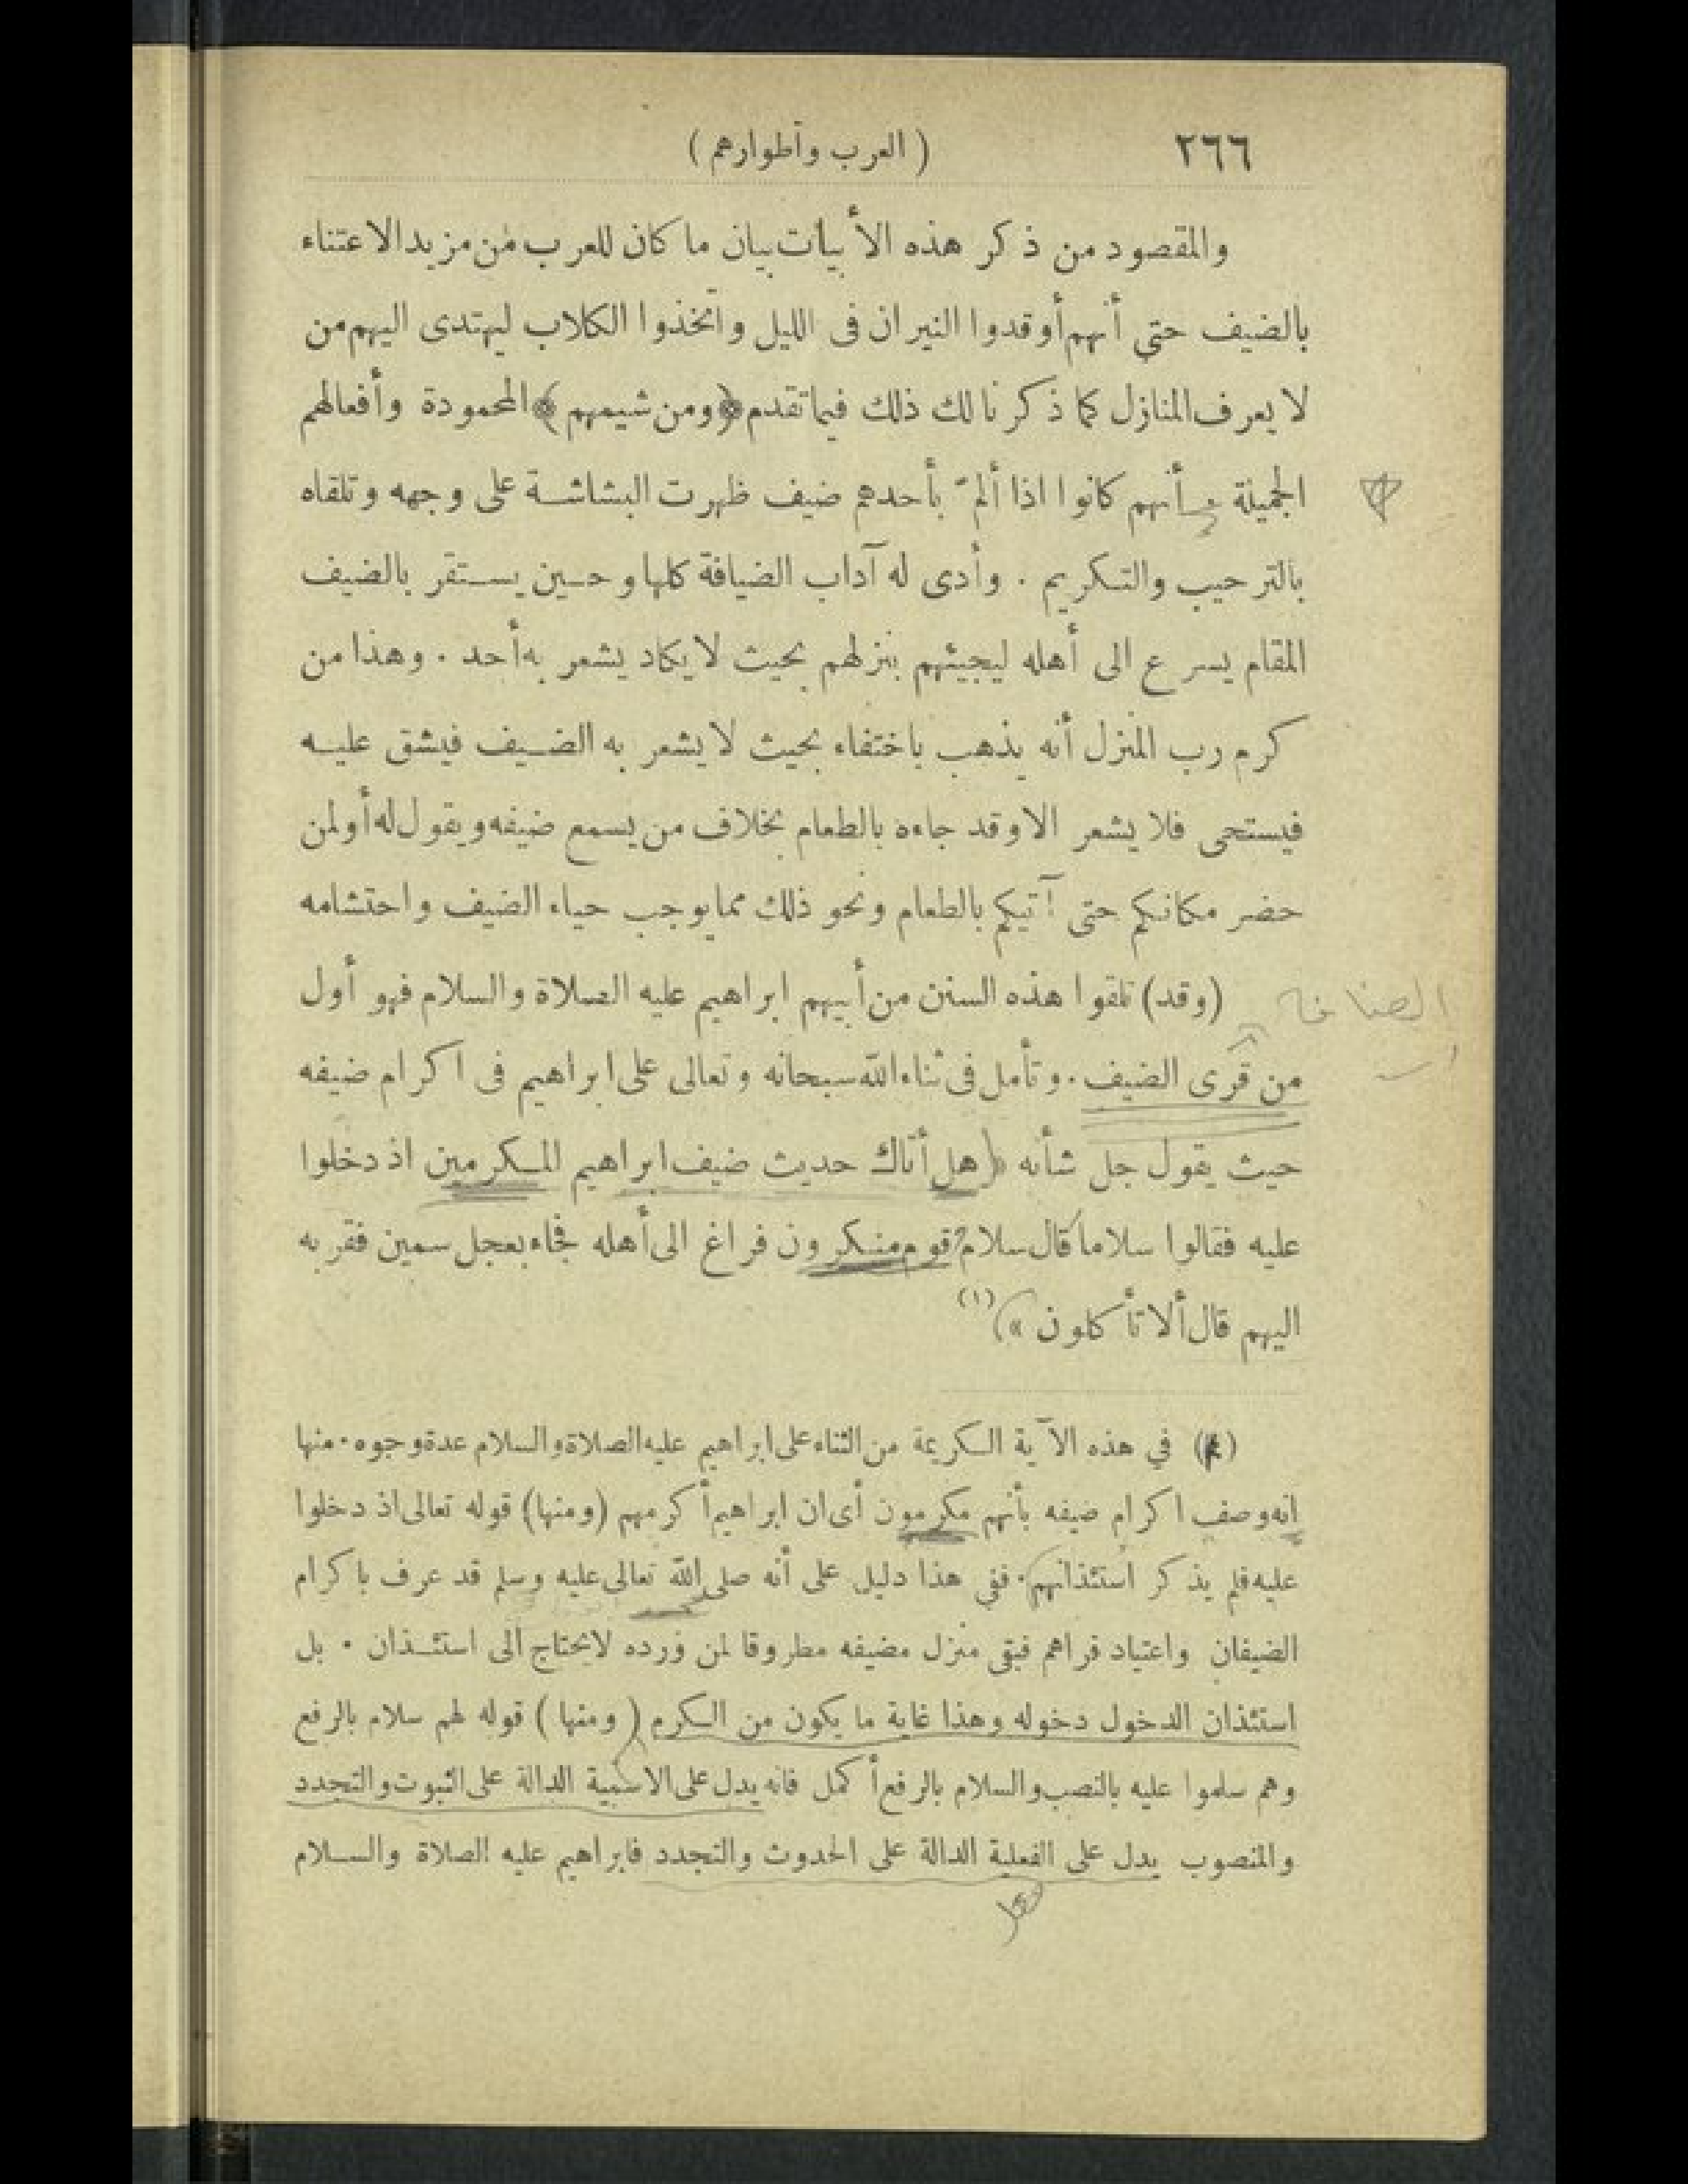 ٢٦٦
( العرب وأطوارهم )
والمقصود من ذكر هذه الأبيات بيان ما كان للعرب من مزيد الاعتناء
بالضيف حتى أنهم أوقدوا النيران فى الليل واتخذوا الكلاب ليهتدى اليهم من
لا يعرف المنازل كما ذكرنا لك ذلك فيما تقدم ﴿ ومن شيمهم ﴾ المحمودة وأفعالهم
الجميلة أنهم كانوا اذا ألمّ بأحدهم ضيف ظهرت البشاشة على وجهه وتلقاه
بالترحيب والتكريم . وأدى له آداب الضيافة كلها وحين يستقر بالضيف
المقام يسرع الى أهله ليجيئهم بنزلهم بحيث لا يكاد يشعر به أحد . وهذا من
كرم رب المنزل أنه يذهب باختفاء بحيث لا يشعر به الضيف فيشق عليه
فيستحى فلا يشعر الا وقد جاءه بالطعام بخلاف من يسمع ضيفه ويقول له أو لمن
حضر مكانكم حتى آتيكم بالطعام ونحو ذلك مما يوجب حياء الضيف واحتشامه
(وقد) تلقوا هذه السنن من أبيهم ابراهيم عليه الصلاة والسلام فهو أول
من قرى الضيف . وتأمل فى ثناء الله سبحانه وتعالى على ابراهيم فى اكرام ضيفه
حيث يقول جل شأنه « هل أتاك حديث ضيف ابراهيم المكرمين اذ دخلوا
عليه فقالوا سلاما قال سلام قوم منكرون فراغ الى أهله فجاء بعجل سمين فقربه
اليهم قال ألا تأكلون » (١)
(١) في هذه الآية الكريمة من الثناء على ابراهيم عليه الصلاة والسلام عدة وجوه . منها
انه وصف اكرام ضيفه بأنهم مكرمون أى ان ابراهيم أكرمهم (ومنها) قوله تعالى اذ دخلوا
عليه فلم يذكر استئذانهم . ففي هذا دليل على أنه صلى الله تعالى عليه وسلم قد عرف باكرام
الضيفان واعتياد قراهم فبقى منزل مضيفه مطروقا لمن ورده لا يحتاج الى استئذان . بل
استئذان الدخول دخوله وهذا غاية ما يكون من الكرم ( ومنها ) قوله لهم سلام بالرفع
وهم سلموا عليه بالنصب والسلام بالرفع أكمل فانه يدل على الاسمية الدالة على الثبوت والتجدد
والمنصوب يدل على الفعلية الدالة على الحدوث والتجدد فابراهيم عليه الصلاة والسلام